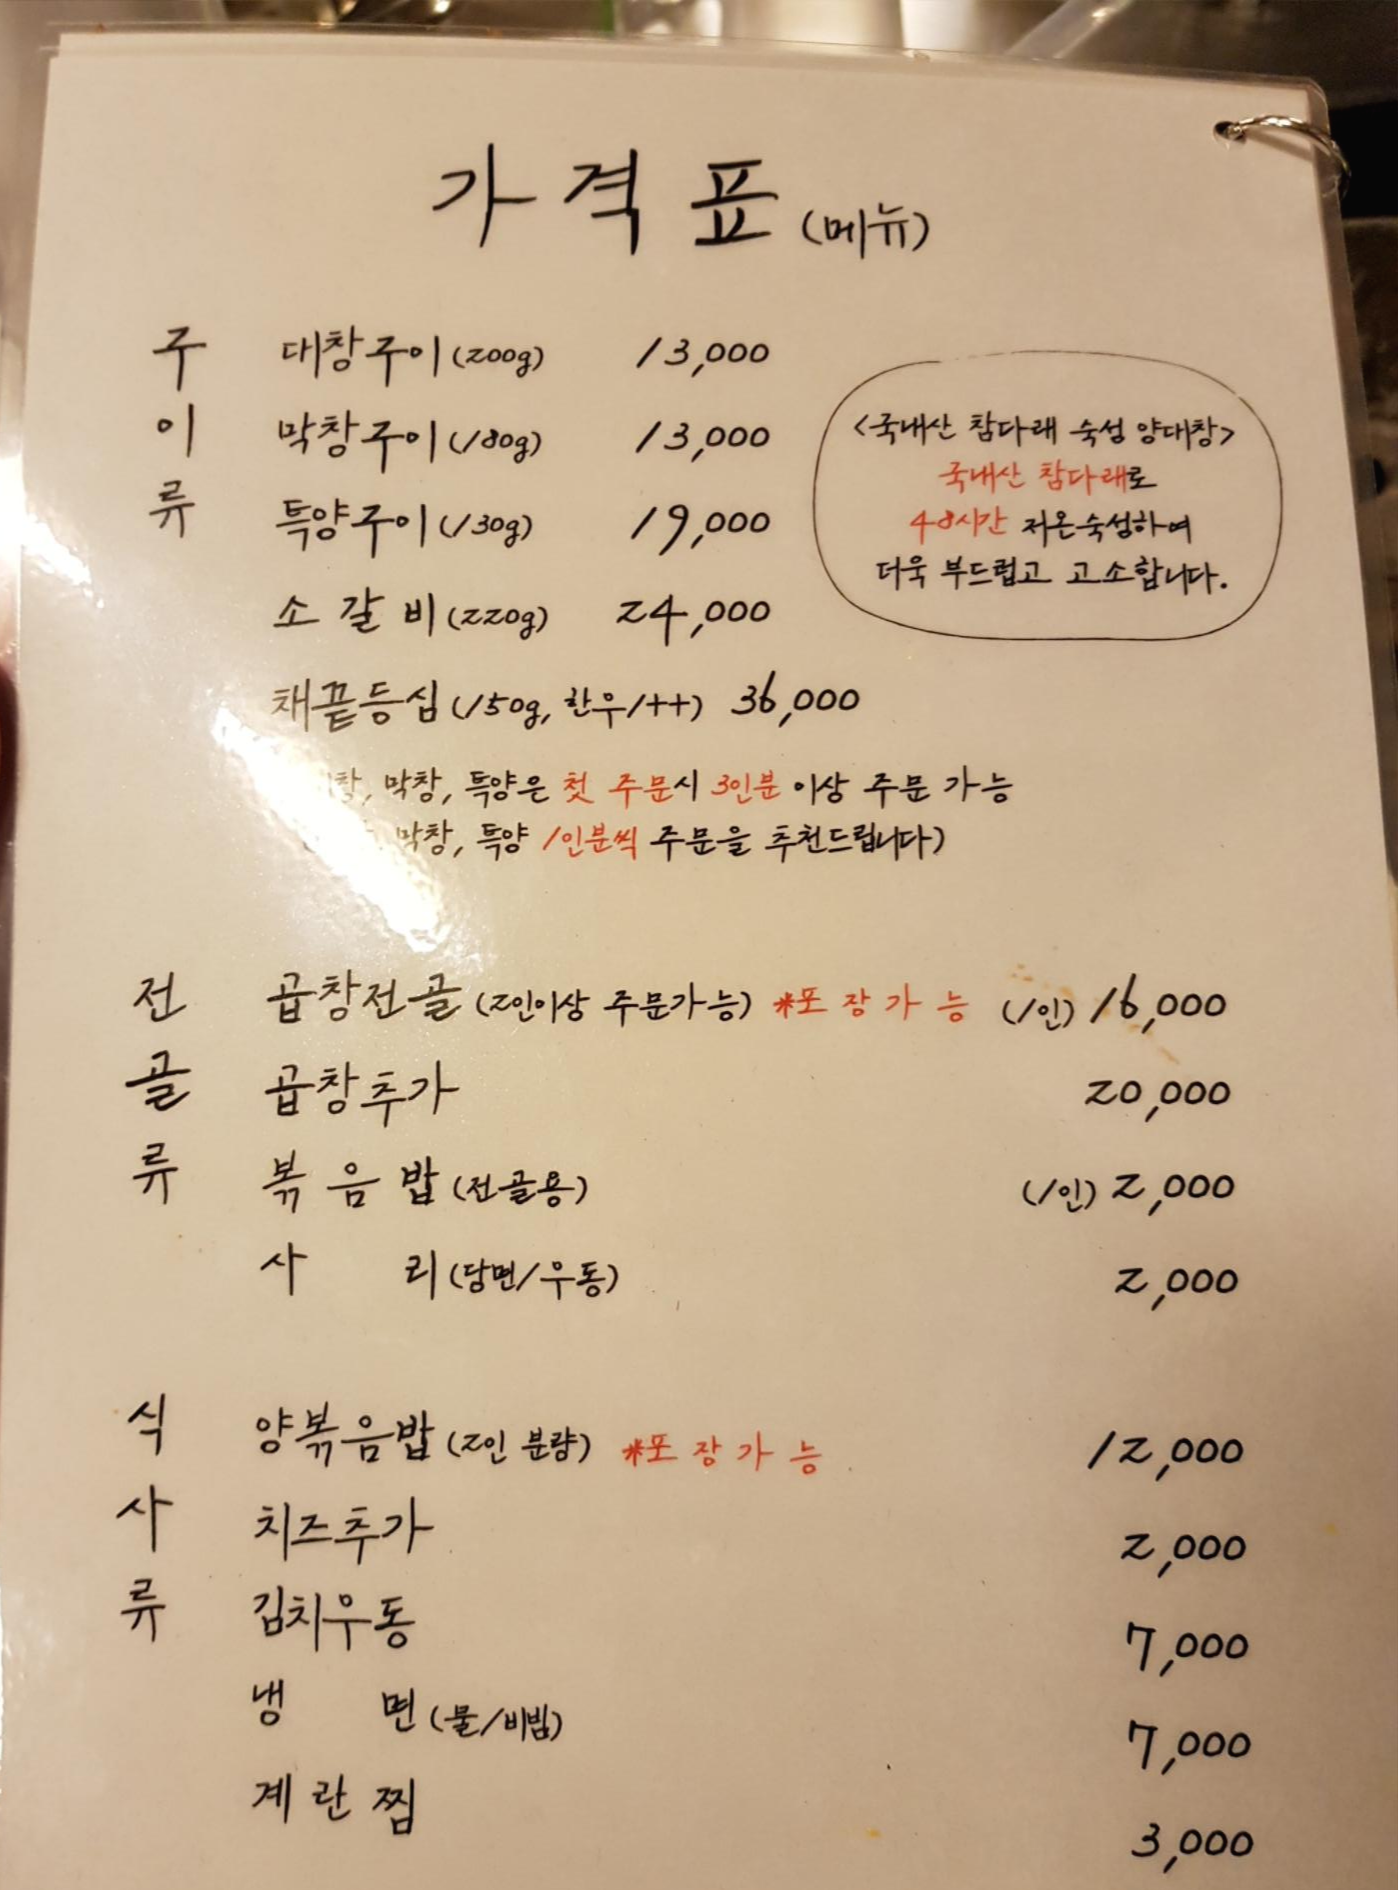 가격표 (메뉴)
구이류
대창구이 (200g) 13,000
막창구이 (180g) 13,000
특양구이 (130g) 19,000
소갈비 (220g) 24,000
채끝등심 (150g, 한우1++) 36,000
<국내산 참다래 숙성 양대창>
국내산 참다래로
48시간 저온숙성하여
더욱 부드럽고 고소합니다.
막창, 특양은 첫 주문시 3인분 이상 주문 가능
막창, 특양 1인분씩 주문을 추천드립니다)
전골류
곱창전골 (2인이상 주문가능) *포장가능 (1인) 16,000
곱창추가 20,000
볶음밥 (전골용) (1인) 2,000
사리 (당면/우동) 2,000
식사류
양볶음밥 (2인 분량) *포장가능 12,000
치즈추가 2,000
김치우동 7,000
냉면 (물/비빔) 7,000
계란찜 3,000